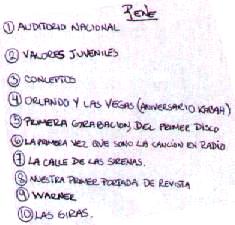 RENE
① AUDITORIO NACIONAL
② VALORES JUVENILES
③ CONCEPTOS
④ ORLANDO Y LAS VEGAS (ANIVERSARIO KABAH)
⑤ PRIMERA GRABACION DEL PRIMER DISCO
⑥ LA PRIMERA VEZ QUE SONO LA CANCIÓN EN RADIO.
⑦ LA CALLE DE LAS SIRENAS.
⑧ NUESTRA PRIMER PORTADA DE REVISTA
⑨ WARNER
⑩ LAS GIRAS.